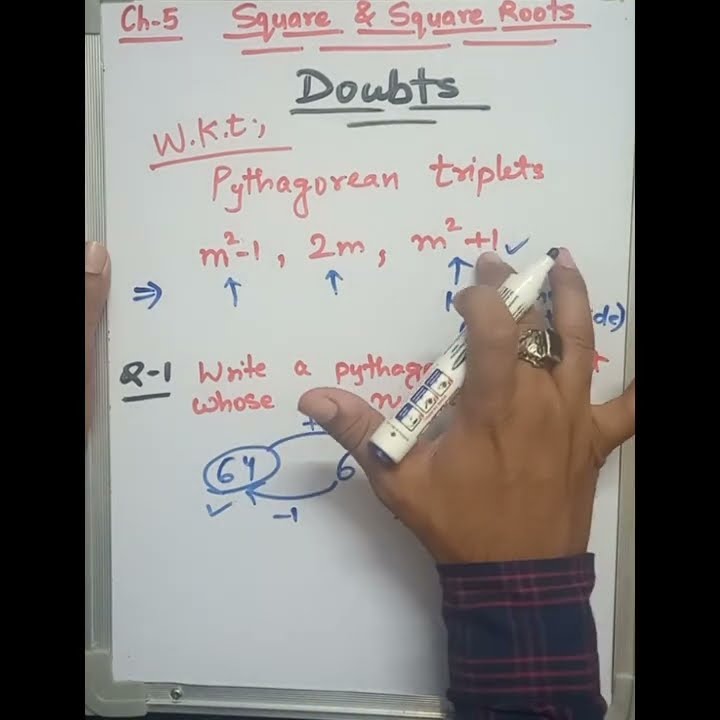 Ch-5 Square & Square Roots
Doubts
W.K.t;,
Pythagorean triplets
m²-1, 2m, m²+1 ✓
⇒ ↑ ↑ ↑
de)
Q-1 Write a
whose
64 6
✓ -1